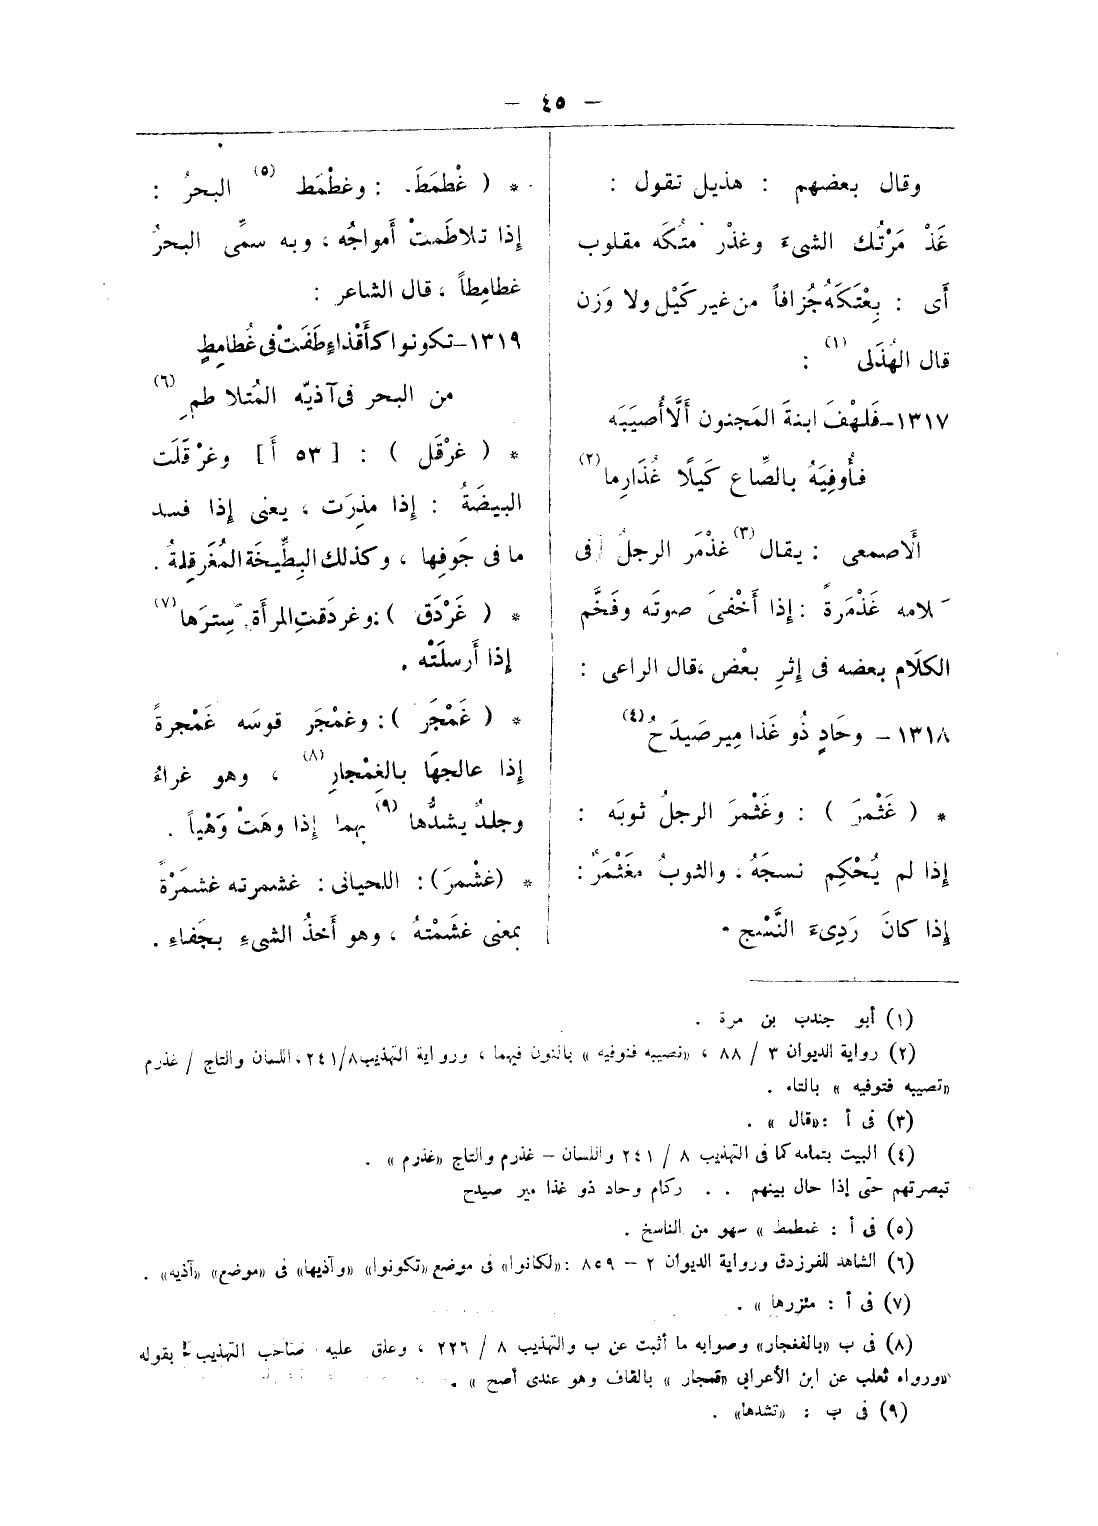 — ٤٥ —
وقال بعضهم : هذيل تقول :
غَذْ مَرْتُك الشىءَ وغذْر مْتُكَه مقلوب
أَى : بِعْتَكَهُ جُزافاً من غير كَيْل ولا وَزن
قال الهُذَلى (١) :
١٣١٧ـ فَلهْفَ ابنةَ المَجنون أَلَّا أُصيبَه
فأُوفِيَهُ بالصِّاع كَيلًا غُذَارِما (٢)
أَلاصمعى : يقال (٣) غذْمَر الرجلُ فى
كلامه غَذْمَرةً : إذا أَخْفىَ صوتَه وفَخَّم
الكلَام بعضه فى إثرِ بعْض ، قال الراعى :
١٣١٨ ـ وحَادٍ ذُو غَذا مِير صَيدَحُ (٤)
* ( غَثْمرَ ) : وغَثْمرَ الرجلُ ثوبَه :
إذا لم يُحْكِم نسجَهُ ، والثوبُ مغَثْمَرٌ :
إذا كانَ رَدِىءَ النَّسْج .
* ( غْطمَطَ ) : وغطْمَط (٥) البحرُ :
إذا تلاطَمتْ أَمواجُه ، وبه سمِّى البحرُ
غطامِطاً ، قال الشاعر :
١٣١٩ـ تكونوا كأَقْذاءٍ طَفَتْ فى غُطامِطٍ
من البحر فى آذيّه المُتلا طمِ (٦)
* ( غرْقَل ) : [ ٥٣ أَ ] وغرْقَلَت
البيضَةُ : إذا مذِرَت ، يعنى إذا فسد
ما فى جَوفِها ، وكذلك البِطِّيخَة المُغَرقِلةُ .
* ( غَرْدَق ) : وغردَقتِ المرأَة سِترَها (٧)
إذا أَرسلَتْه .
* ( غَمْجَر ) : وغمْجَر قوسَه غَمْجرةً
إذا عالجهَا بالغِمْجارِ (٨) ، وهو غراءٌ
وجلدٌ يشدُّها (٩) بهما إذا وهَتْ وَهْياً .
* (غشْمرَ) : اللحيانى : غشمرته غشمَرْةً
بمعنى غشَمْتهُ ، وهو أَخذُ الشىءِ بجَفاءِ .
(١) أبو جندب بن مرة .
(٢) رواية الديوان ٣ / ٨٨ ، «نصيبه فنوفيه » بالنون فيهما ، ورواية التهذيب ٢٤١/٨ ، اللسان والتاج / غذرم
«تصيبه فتوفيه » بالتاء .
(٣) فى أ : «قال » .
(٤) البيت بتمامه كما فى التهذيب ٨ / ٢٤١ واللسان – غذرم والتاج «غذرم » .
تبصرتهم حتى إذا حال بينهم . . ركام وحاد ذو غذا مير صيدح
(٥) فى أ : غمطمط » سهو من الناسخ .
(٦) الشاهد للفرزدق ورواية الديوان ٢ – ٨٥٩ : «لكانوا» فى موضع «تكونوا» «وآذيها» فى «موضع» «آذيه» .
(٧) فى أ : مئزرها » .
(٨) فى ب «بالغفجار» وصوابه ما أثبت عن ب والتهذيب ٨ / ٢٢٦ ، وعلق عليه صاحب التهذيب بقوله
«ورواه ثعلب عن ابن الأعرابي «قمجار » بالقاف وهو عندى أصح » .
(٩) فى ب : «تشدها» .